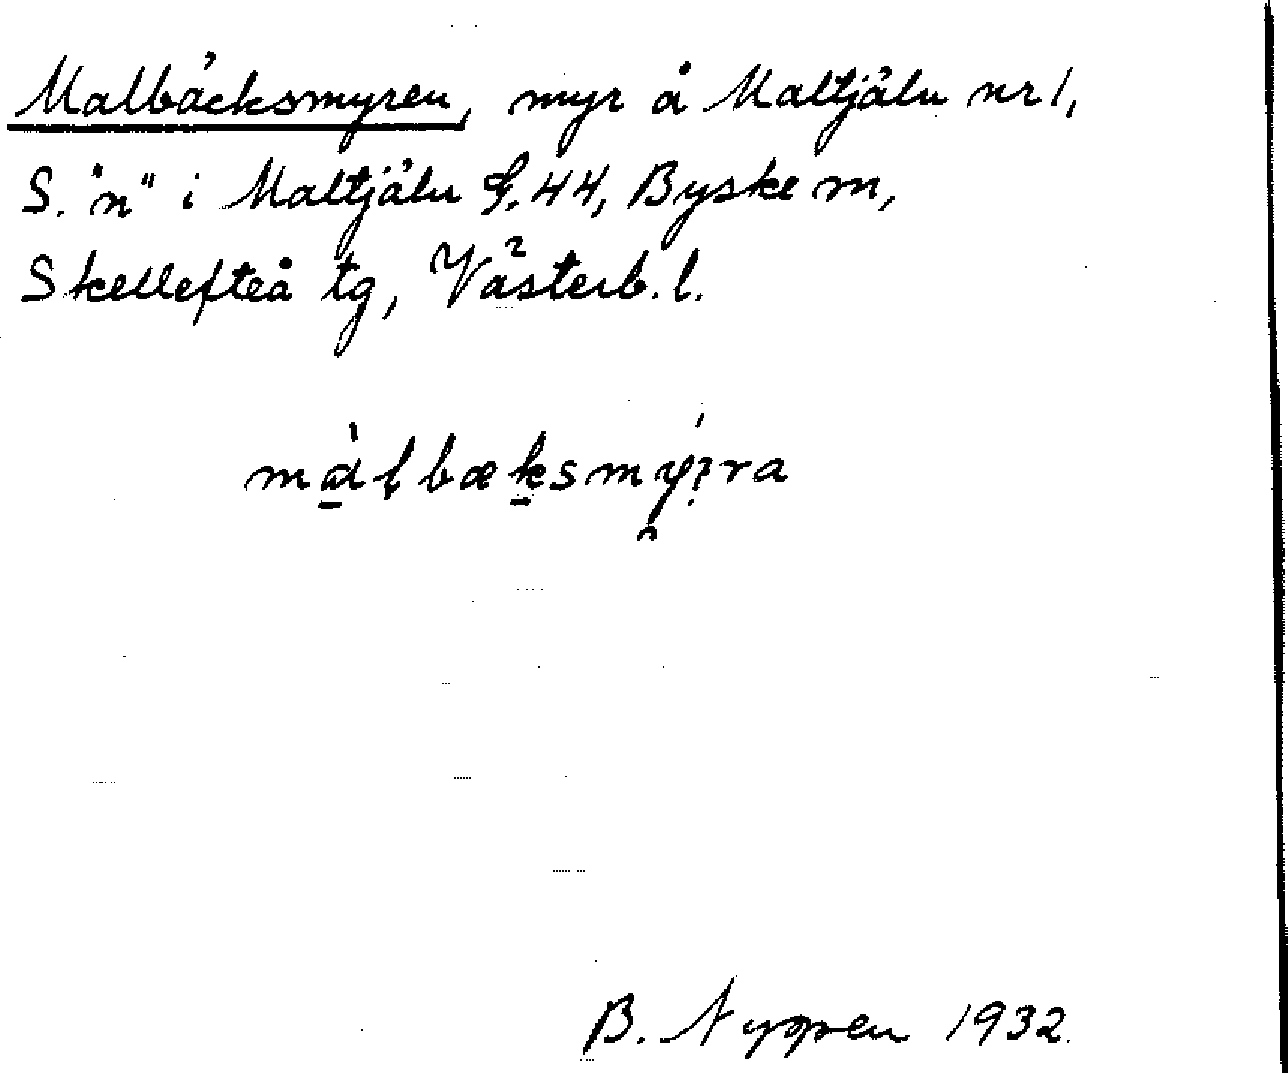 Malbäcksmyren, myr å Maltjäln nr 1,
S. "n" i Maltjäln S. 44, Byske m,
Skellefteå tg, Västerb. l.
màḷbæksmý:ra
B. Nyppen 1932.